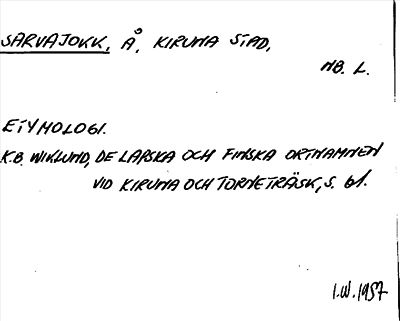 SARVAJOKK, Å, KIRUNA STAD,
NB. L.
ETYMOLOGI.
K.B. WIKLUND, DE LAPSKA OCH FINSKA ORTNAMNEN
VID KIRUNA OCH TORNETRÄSK, S. 61.
I.W. 1957